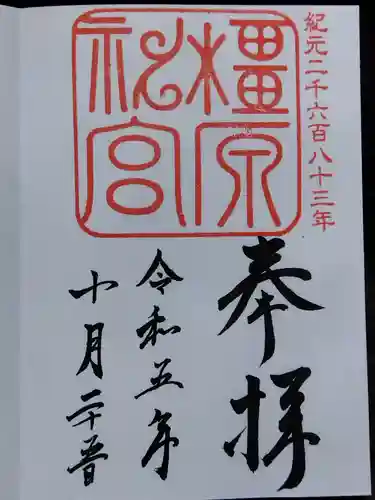 紀元二千六百八十三年
橿原
神宮
奉拝
令和五年
十月二十日